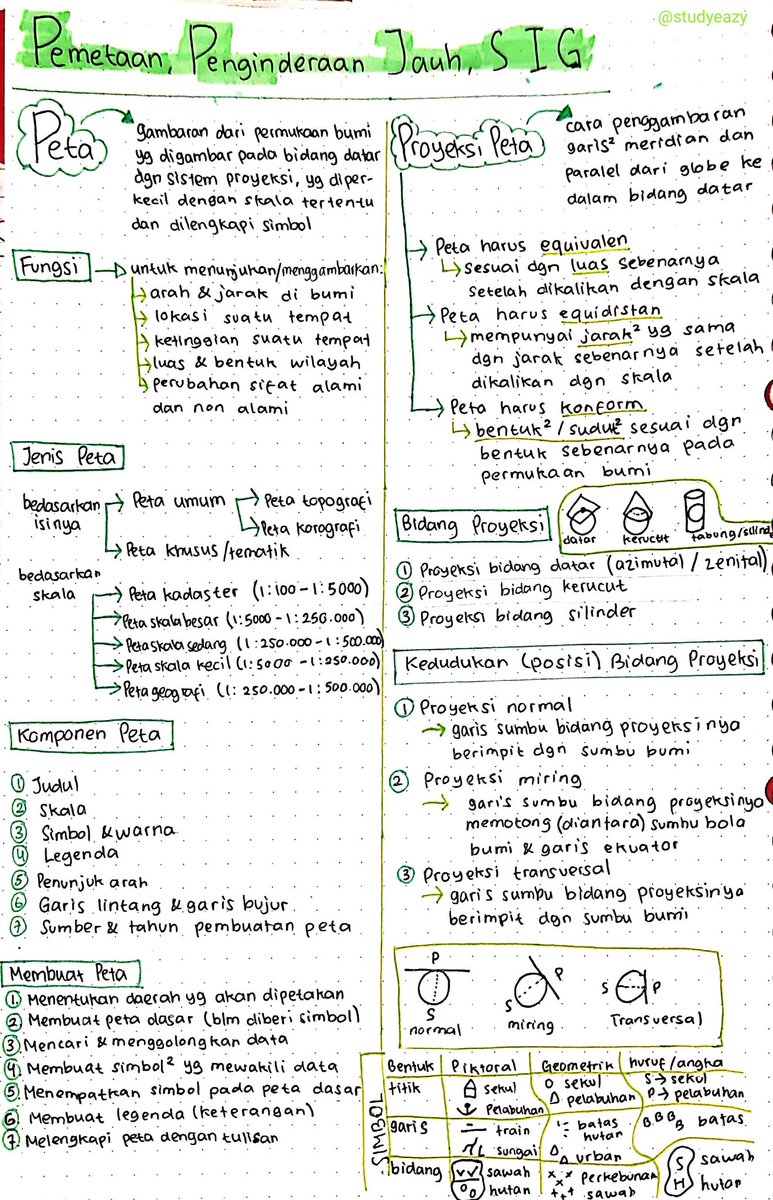 @studyeazy
Pemetaan, Penginderaan Jauh, SIG
Peta
gambaran dari permukaan bumi
yg digambar pada bidang datar
dgn sistem proyeksi, yg diper-
kecil dengan skala tertentu
dan dilengkapi simbol
Fungsi
untuk menunjukan/menggambarkan:
arah & jarak di bumi
lokasi suatu tempat
ketinggian suatu tempat
luas & bentuk wilayah
perubahan sifat alami
dan non alami
Jenis Peta
bedasarkan
isinya
Peta umum
Peta topografi
Peta korografi
Peta khusus/tematik
bedasarkan
skala
Peta kadaster (1:100-1:5000)
Peta skala besar (1:5000-1:250.000)
Peta skala sedang (1:250.000-1:500.000)
Peta skala kecil (1:5000-1:250.000)
Peta geografi (1:250.000-1:500.000)
Komponen Peta
① Judul
② Skala
③ Simbol & warna
④ Legenda
⑤ Penunjuk arah
⑥ Garis lintang & garis bujur
⑦ Sumber & tahun pembuatan peta
Membuat Peta
1. Menentukan daerah yg akan dipetakan
② Membuat peta dasar (blm diberi simbol)
③ Mencari & menggolongkan data
④ Membuat simbol² yg mewakili data
⑤ Menempatkan simbol pada peta dasar
⑥ Membuat legenda (keterangan)
⑦ Melengkapi peta dengan tulisan
Proyeksi Peta
cara penggambaran
garis² meridian dan
paralel dari globe ke
dalam bidang datar
Peta harus equivalen
sesuai dgn luas sebenarnya
setelah dikalikan dengan skala
Peta harus equidistan
mempunyai jarak² yg sama
dgn jarak sebenarnya setelah
dikalikan dgn skala
Peta harus konform
bentuk²/sudut² sesuai dgn
bentuk sebenarnya pada
permukaan bumi
Bidang Proyeksi
datar kerucut tabung/silind
① Proyeksi bidang datar (azimutal/zenital)
② Proyeksi bidang kerucut
③ Proyeksi bidang silinder
Kedudukan (posisi) Bidang Proyeksi
① Proyeksi normal
garis sumbu bidang proyeksinya
berimpit dgn sumbu bumi
② Proyeksi miring
garis sumbu bidang proyeksinya
memotong (diantara) sumbu bola
bumi & garis ekuator
③ Proyeksi transversal
garis sumbu bidang proyeksinya
berimpit dgn sumbu bumi
P P S P
S S
normal miring Transversal
SIMBOL
Bentuk Piktoral Geometrik huruf/angka
titik sekul sekul S→sekul
Pelabuhan pelabuhan P→pelabuhan
garis train batas B B B B batas
hutan
sungai urban
bidang sawah perkebunan S sawah
hutan sawah H hutan